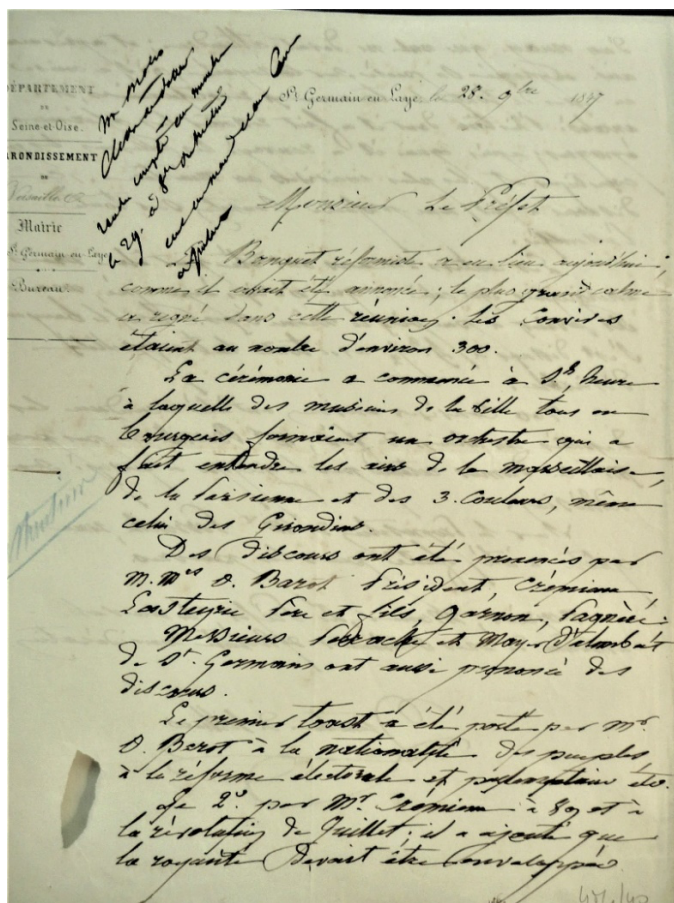 DÉPARTEMENT
DE
Seine-et-Oise.
ARRONDISSEMENT
DE
Versailles
Mairie
St Germain en Laye
Bureau.
rendre compte au ministre
le 29. à
St Germain en Laye le 28. 9bre 1847
Monsieur Le Préfet
Le Banquet réformiste a eu lieu aujourd'hui,
comme il avait été annoncé; le plus grand calme
a régné dans cette réunion. Les Convives
étaient au nombre d'environ 300.
La cérémonie a commencé à heure
à laquelle des musiciens de la Ville tous en
bourgeois formaient un orchestre qui a
fait entendre les airs de la marseillaise,
de la Parisienne et des 3. Couleurs, même
celui des Girondins.
Des discours ont été prononcés par
M.Mrs O. Barot Président, Crémieux,
Lasteyrie Père et fils, Garnon, Pagnère.
Messieurs et
de St. Germain ont aussi prononcé des
discours.
Le premier toast a été porté par Mr.
O. Barot à la nationalité des peuples,
à la réforme électorale et parlementaire etc.
Le 2e. par Mr. Crémieux à 89 et à
la révolution de Juillet; il a ajouté que
la royauté devait être enveloppée